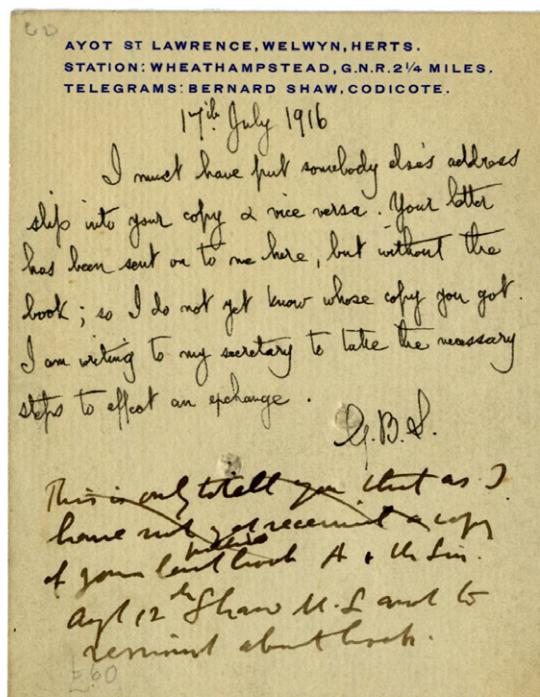 AYOT ST LAWRENCE, WELWYN, HERTS.
STATION: WHEATHAMPSTEAD, G.N.R. 2¼ MILES.
TELEGRAMS: BERNARD SHAW, CODICOTE.
17th July 1916
I must have put somebody else's address
slip into your copy & vice versa. Your letter
has been sent on to me here, but without the
book; so I do not yet know whose copy you got.
I am writing to my secretary to take the necessary
steps to effect an exchange.
G.B.S.
This is only to tell you that as I
have not yet received a copy
of your book A & the Lion.
12th Shaw and to
about book.
£60